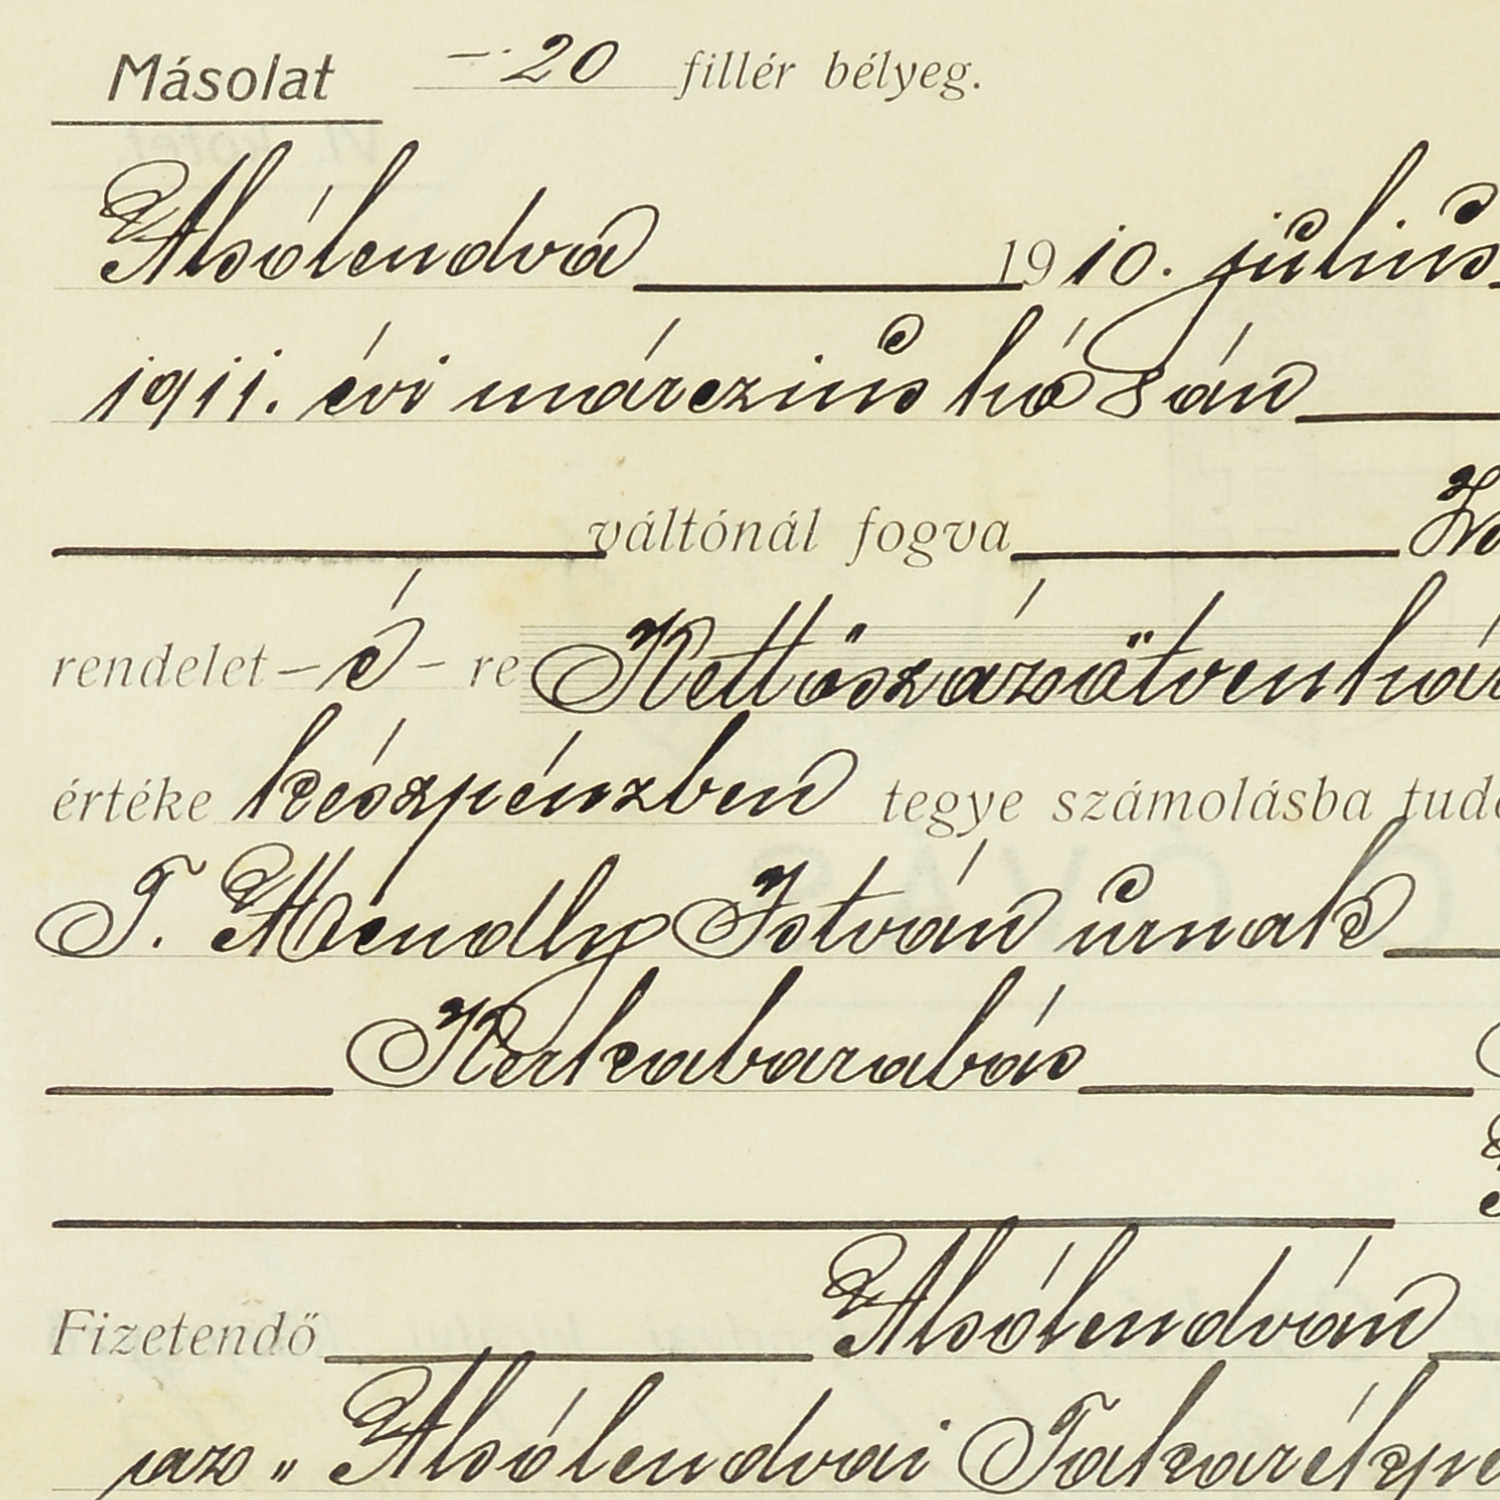 Másolat -20 fillér bélyeg.
Alsólendva 1910. július
1911. évi márczius hó 8 án
váltónál fogva
rendelet - é - re Kettőszázötvenhá
értéke készpénzben tegye számolásba tud
T. Mendly István úrnak
Kerkabarabás
Fizetendő Alsólendván
az „Alsólendvai Takarékpé